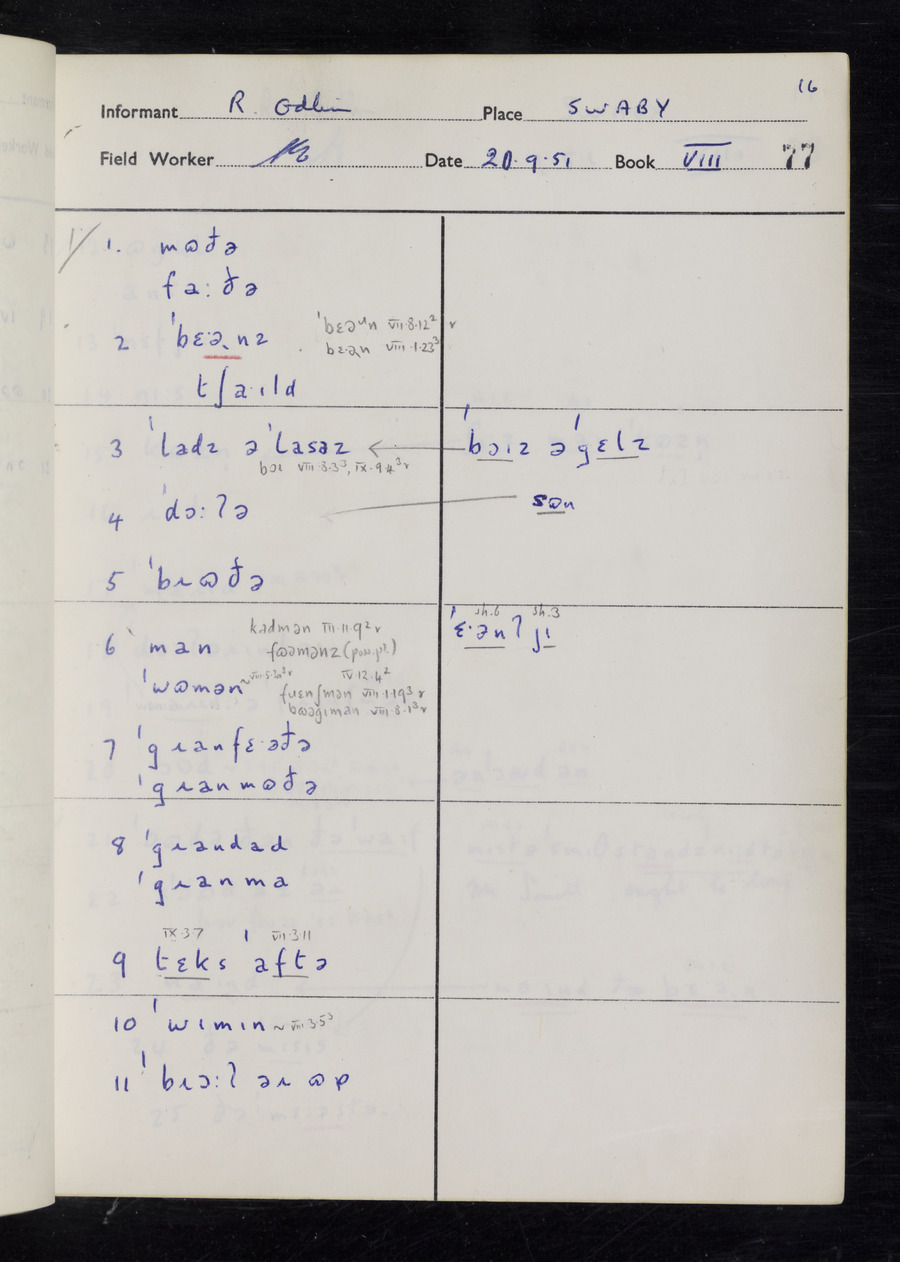 16
Informant R. Odlin Place SWABY
Field Worker Date 20.9.51 Book VIII 77
1. mɷðə
fa:ðə
2 ˈbɛ:ə̣nz ˈbɛəᶸn VII.8.12² r
bɛ·ə̣n VIII.1.23³
tʃa·ıld
3 ˈladz əˈlasəz ← ˈbɔız əˈgɛlz
bɔɪ VIII.3.3³, IX.9.4³ r
4 ˈdɔ:ʔə sɷn
5 ˈbɹɷðə
kɹadmən III.11.9² r sh.6 sh.3
6 man fɷəmənz (poss. pl.) ˈɛ·ənʔ jı
ˈwɷmən ~ VIII.5.3a³ r IV.12.4²
fɹɛnʃmən VIII.1.19³ r
bɷəgımən VIII.8.1³ r
7 ˈgɹanfɛ·əðə
ˈgɹanmɷðə
8 ˈgɹandad
ˈgɹanma
IX.3.7 VII.3.11
9 tɛks ˈaftə
10 ˈwımın ~ VIII.3.5³
11 ˈbɹɔ:ʔ əɹ ɷp